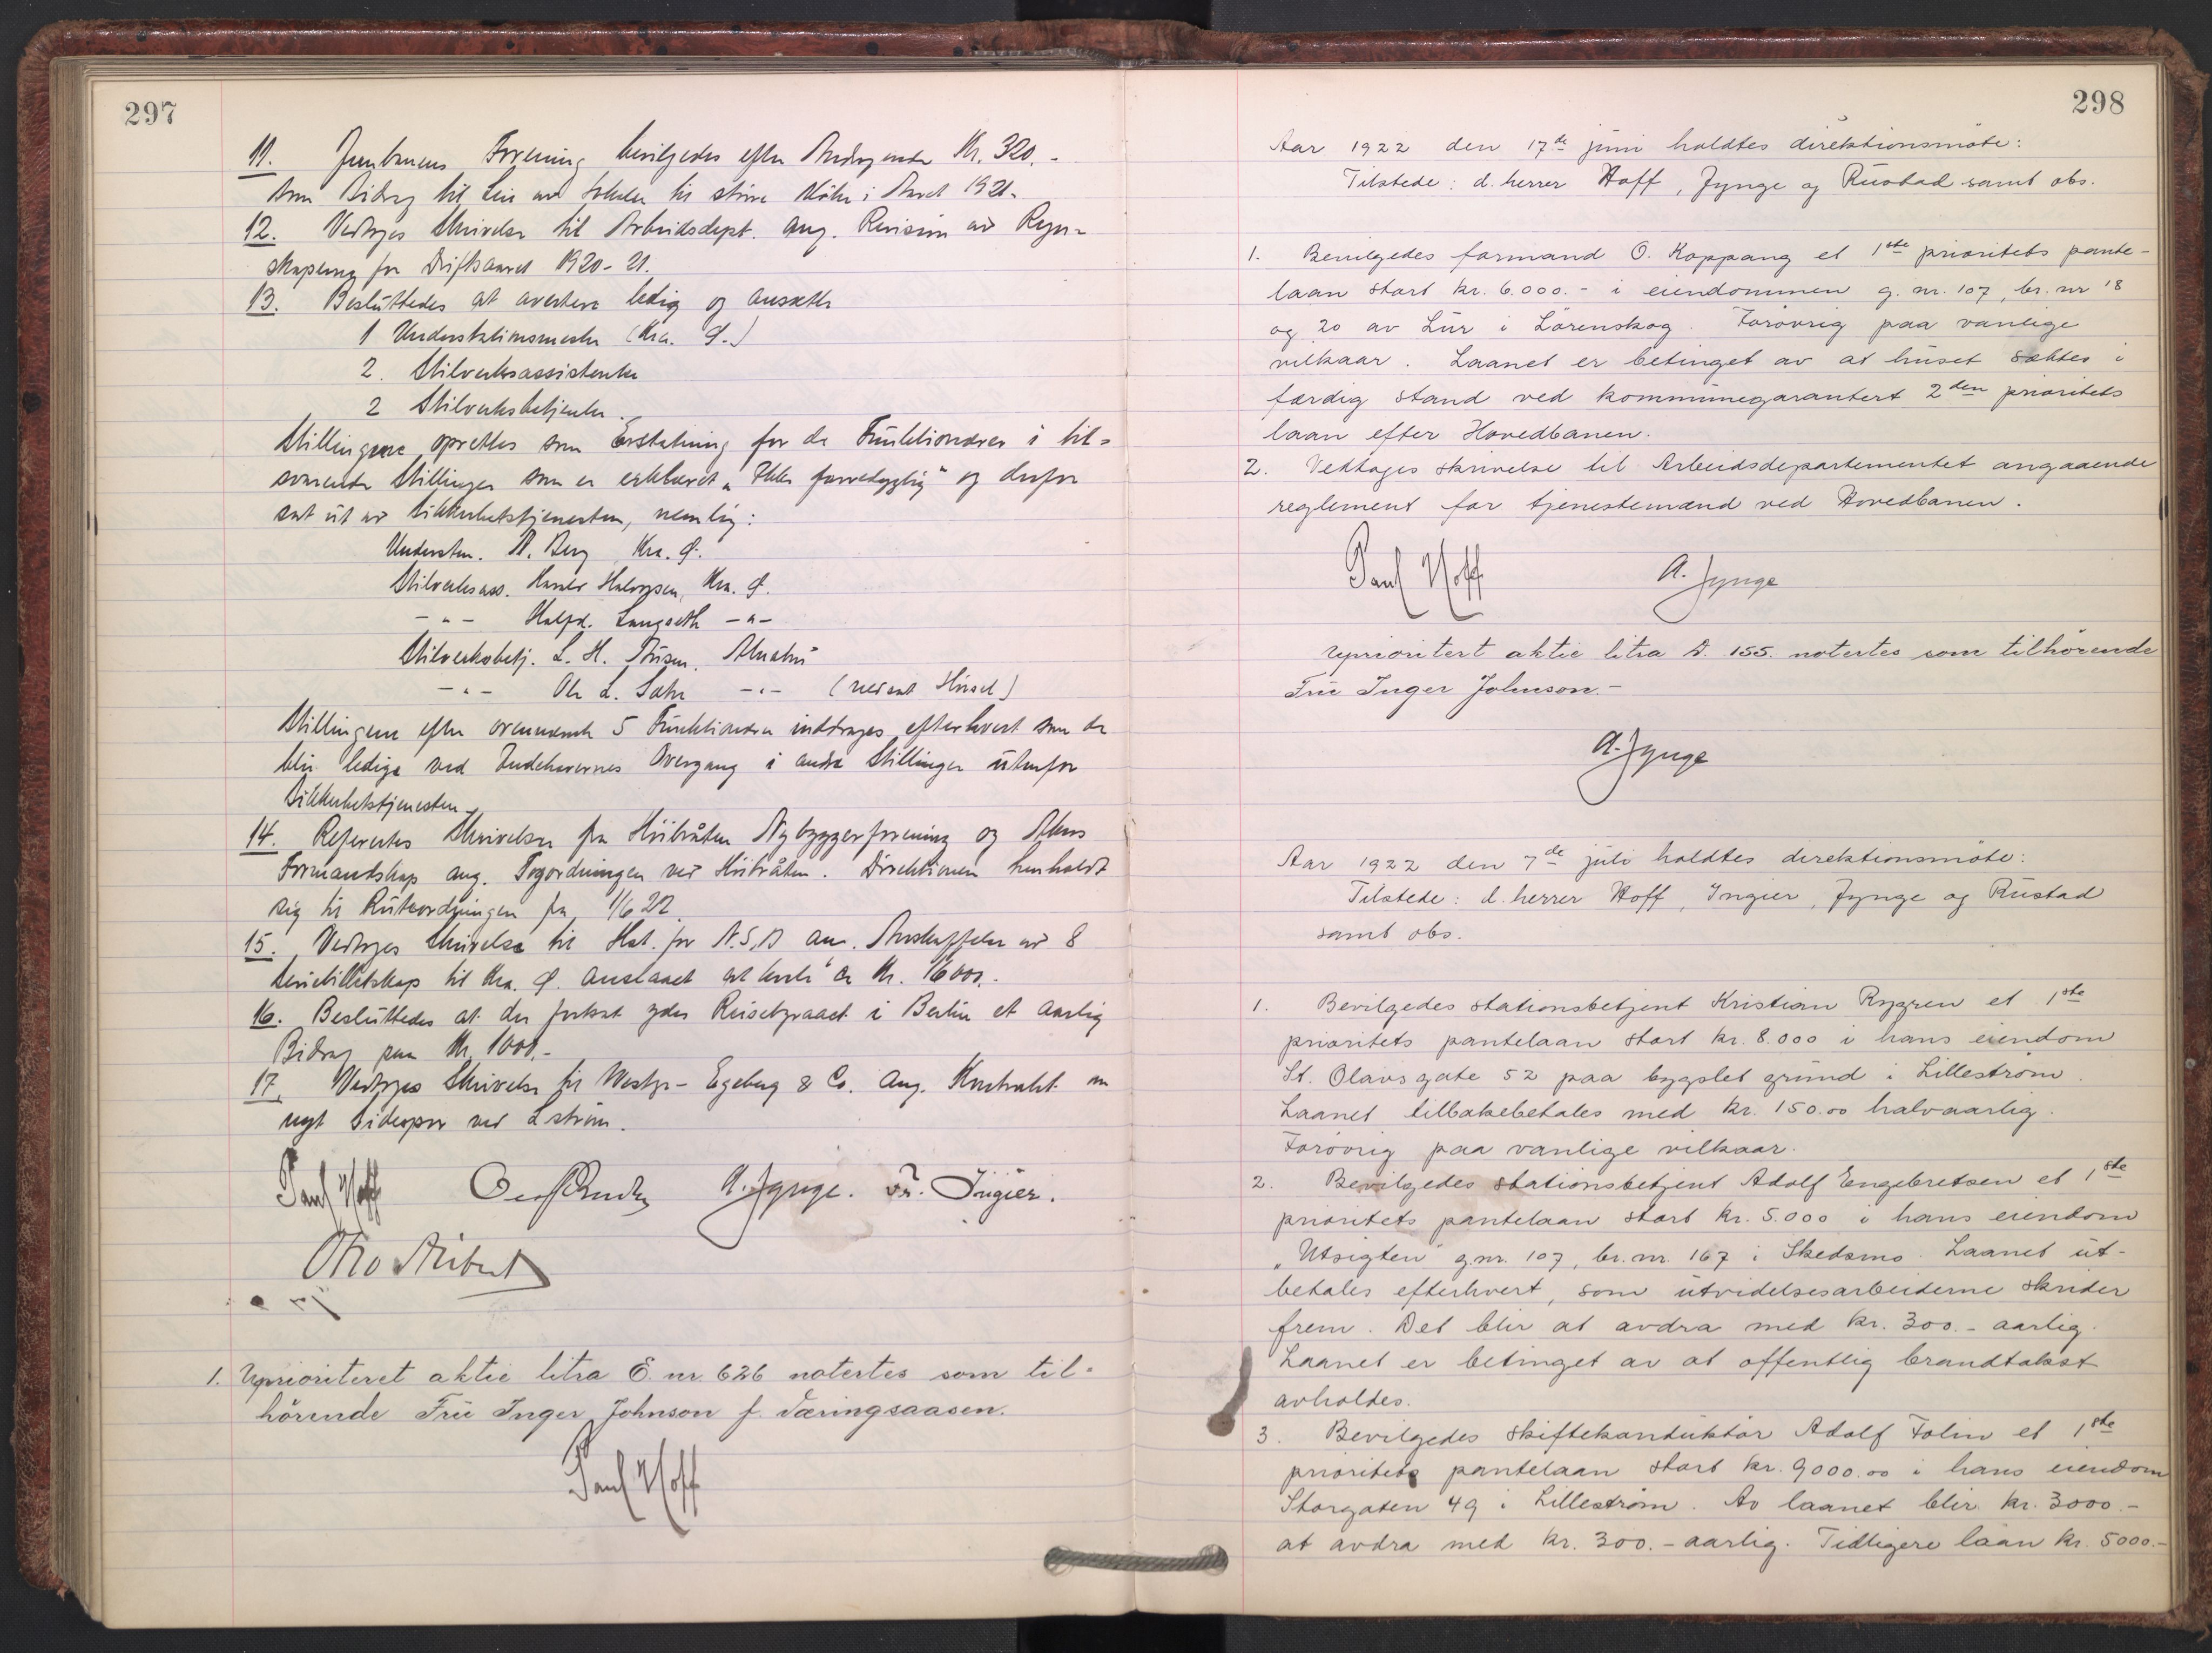 297
11. Jernbanens Forening bevilgedes efter Andragende Kr. 320.-
som Bidrag til Leie av Lokaler til större Möter i Aaret 1921.
12. Vedtoges Skrivelse til Arbeidsdept. ang. Revision av Regn-
skaperne for Driftsaaret 1920-21.
13. Besluttedes at avertere ledig og ansætte
1 Understationsmester (Kra. Ø.)
2. Stilverksassistenter
2 Stilverksbetjenter.
Stillingene oprettes som Erstatning for de Funktionærer i til-
svarende Stillinger som er erklæret „Ikke farvedygtig" og derfor
sat ut av Sikkerhetstjenesten, nemlig:
Understm. A. Berg Kra. Ø.
Stilverksass. Harald Halvorsen, Kra. Ø.
- " - Halfd. Langseth - " -
Stilverksbetj. L. H. Alnabru
- " - Ole L. Sætre - " -
Stillingene efter ovennævnte 5 Funktionærer inddrages efterhvert som de
blir ledige ved Indehavernes Overgang i andre Stillinger utenfor
Sikkerhetstjenesten.
14. Refertes Skrivelser fra Höibråten Nybyggerforening og Akers
Formandskap ang. Togordningen ved Höibråten. Direktionen henholdt
sig til Ruteordningen fra 1/6 22.
15. Vedtoges Skrivelse til Hst. for N.S.B. om Anskaffelse av 8
til Kra. Ø. anslaaet at koste ca Kr. 16000.-
16. Besluttedes at der fortsat ydes Reisebyraaet i Berlin et aarlig
Bidrag paa Kr. 1000.-
17. Vedtoges Skrivelse til Westye-Egeberg & Co. ang. Kontrakt om
nyt Sidespor ved Lström.
Paul Hoff A. Jynge. Fr. Ingier.
Otto
1. Uprioriteret aktie litra E. nr. 626 notertes som til-
hörende Frü Inger Johnson f. Væringsaasen.
Paul Hoff
298
Aar 1922 den 17de juni holdtes direktionsmöte:
Tilstede: d. herrer Hoff, Jynge og Rustad samt obs.
1. Bevilgedes formand O. Koppang et 1ste prioritets pante-
laan stort kr. 6.000.- i eiendommen g. nr. 107, br. nr 18
og 20 av Lur i Lörenskog. Forövrig paa vanlige
vilkaar. Laanet er betinget av at huset sættes i
færdig stand ved kommunegarantert 2den prioritets
laan efter Hovedbanen.
2. Vedtoges skrivelse til Arbeidsdepartementet angaaende
reglement for tjenestemænd ved Hovedbanen.
Paul Hoff A. Jynge
Uprioritert aktie litra D. 155. notertes som tilhörende
Frü Inger Johnson.-
A. Jynge
Aar 1922 den 7de juli holdtes direktionsmöte:
Tilstede: d. herrer Hoff, Ingier, Jynge og Rustad
samt obs.
1. Bevilgedes stationsbetjent Kristian Rygren et 1ste
prioritets pantelaan stort kr. 8.000 i hans eiendom
St. Olavsgate 52 paa bygslet grund i Lilleström.
Laanet tilbakebetales med kr. 150.00 halvaarlig.
Forövrig paa vanlige vilkaar.
2. Bevilgedes stationsbetjent Adolf Engebretsen et 1ste
prioritets pantelaan stort kr. 5.000 i hans eiendom
„Utsigten" g.nr. 107, br. nr. 167 i Skedsmo. Laanet ut-
betales efterhvert, som utvidelsesarbeiderne skrider
frem. Det blir at avdra med kr. 300.- aarlig.
Laanet er betinget av at offentlig brandtakst
avholdes.
3. Bevilgedes skiftekonduktör Adolf Folin et 1ste
prioritets pantelaan stort kr. 9000.00 i hans eiendom
Storgaten 49 i Lilleström. Av laanet blir kr. 3000.-
at avdra med kr. 300.- aarlig. Tidligere laan kr. 5000.-